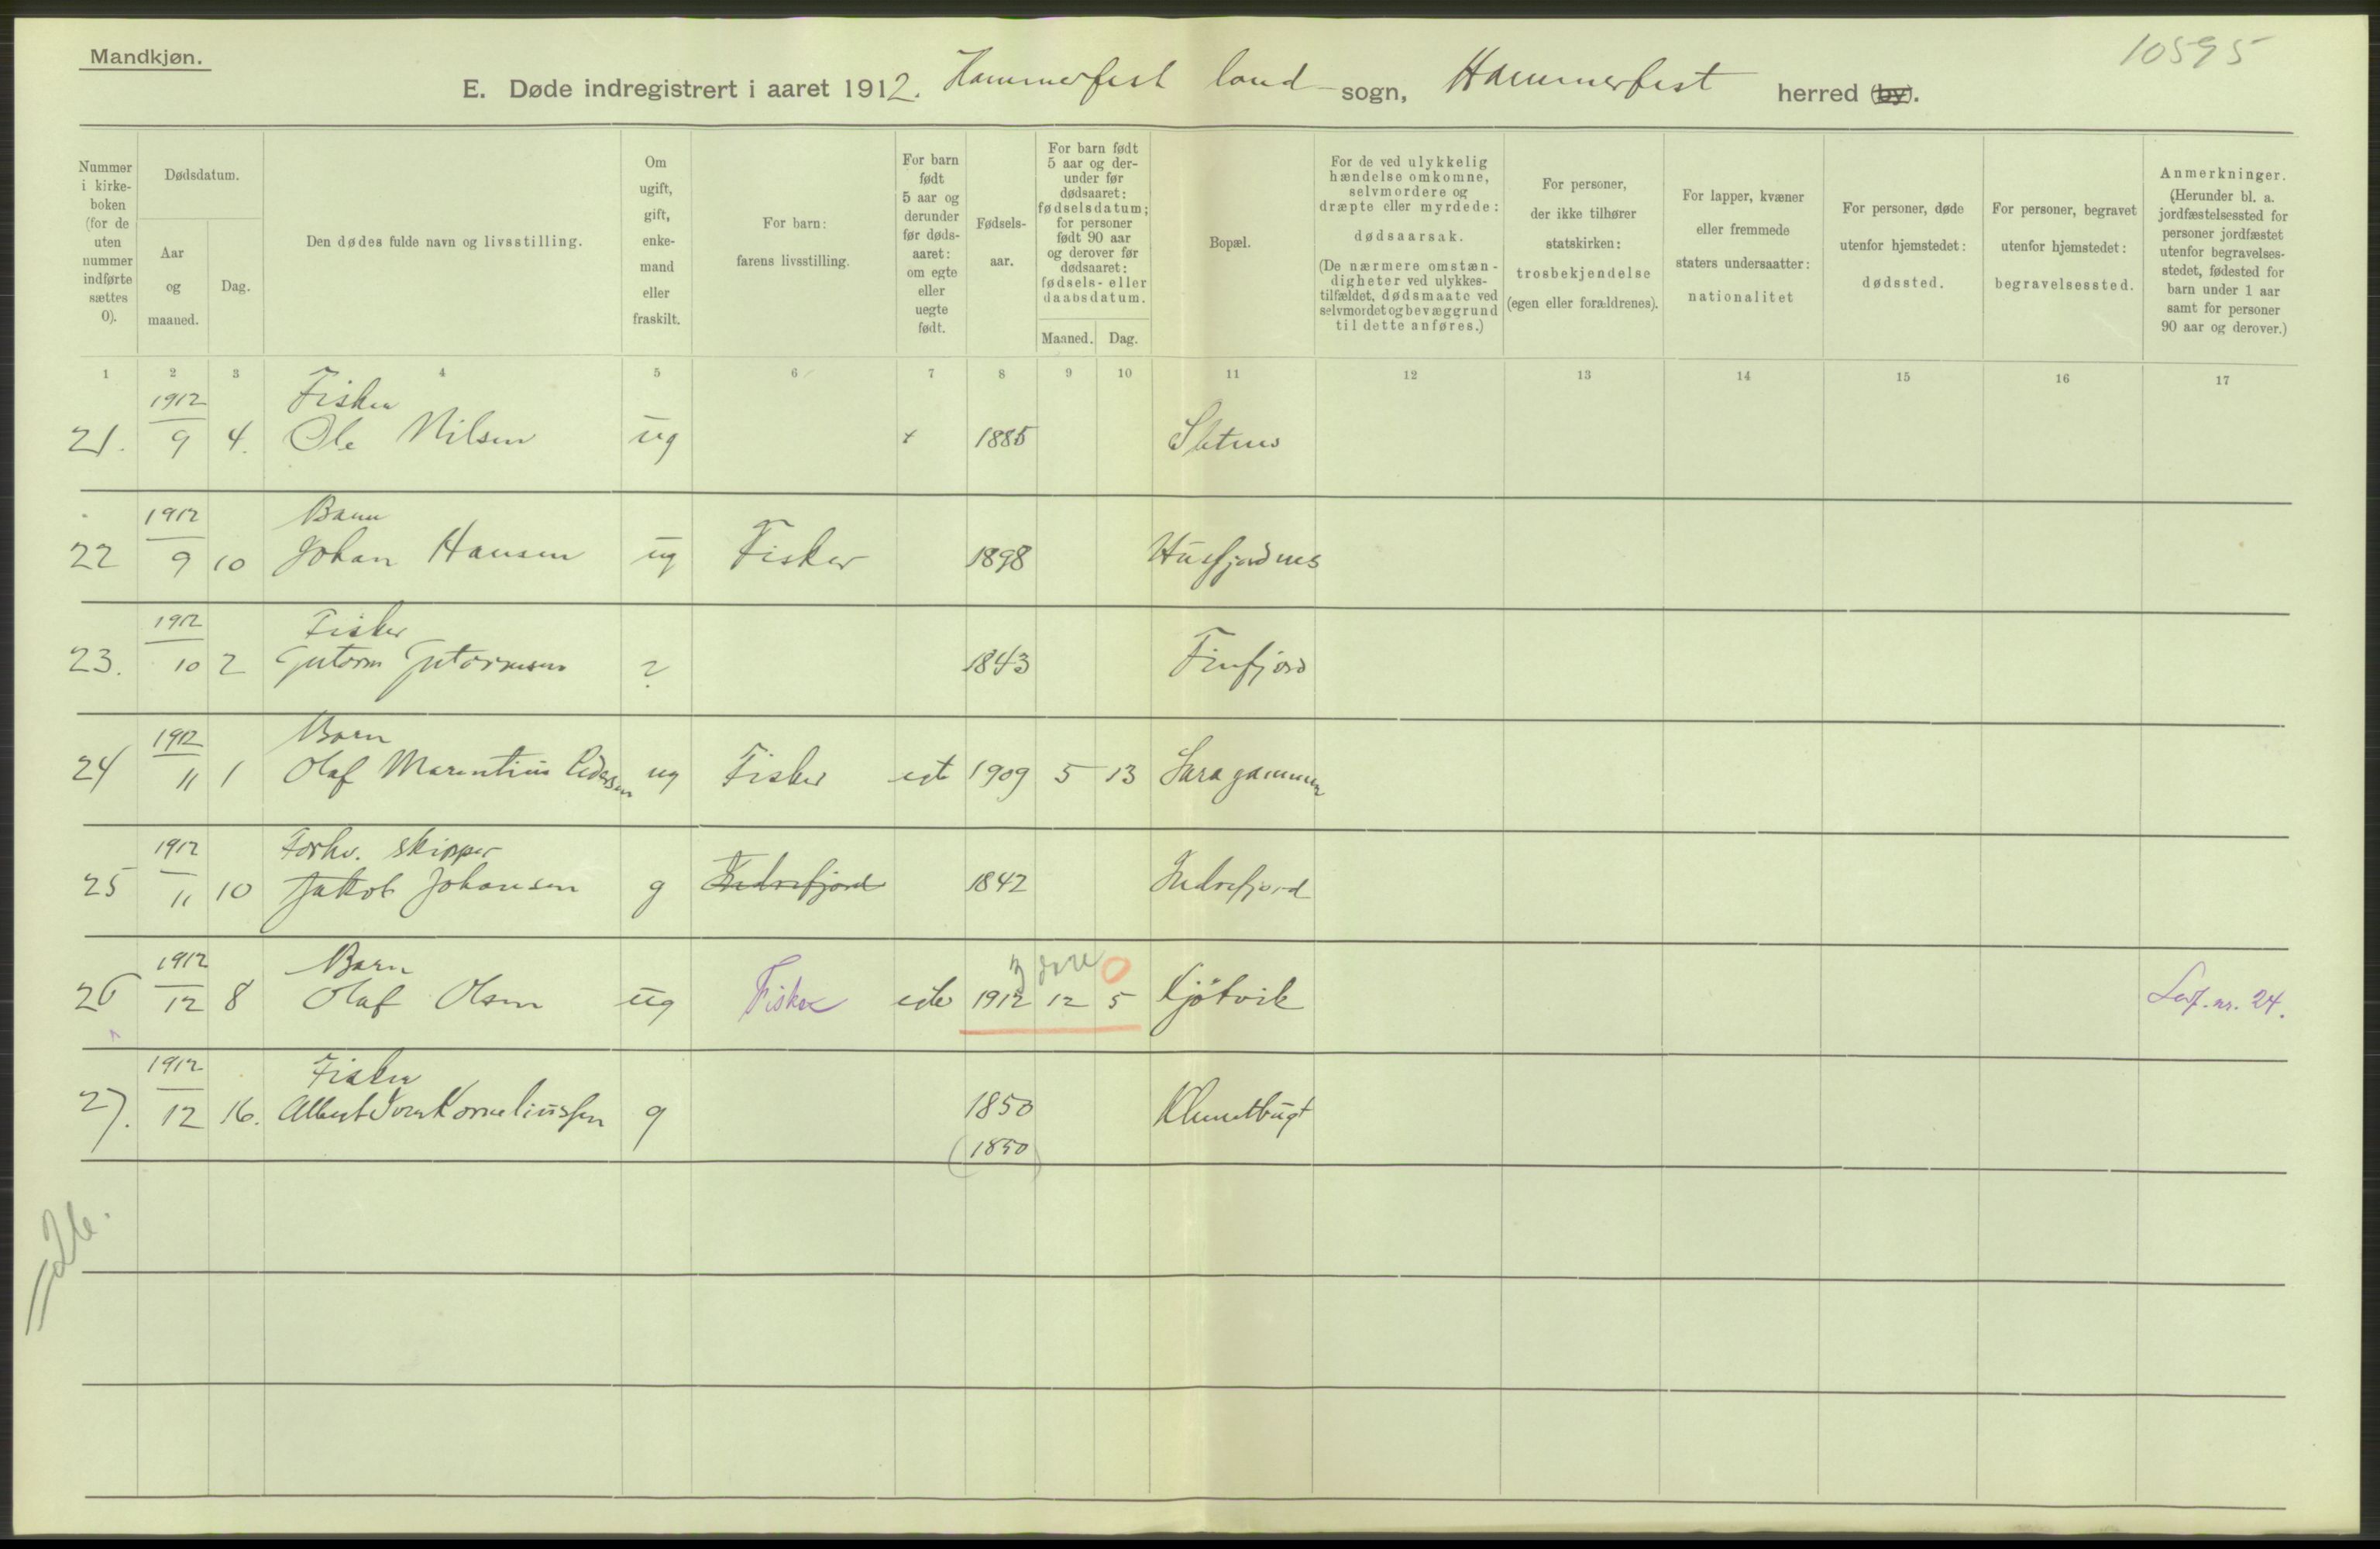 Mandkjøn.
10595
E. Døde indregistrert i aaret 1912. Hammerfest land sogn, Hammerfest herred (by).
Nummer i kirkeboken (for de uten nummer indførte sættes 0).
Dødsdatum.
Aar og maaned.
Dag.
Den dødes fulde navn og livsstilling.
Om ugift, gift, enkemand eller fraskilt.
For barn: farens livsstilling.
For barn født 5 aar og derunder før dødsaaret: om egte eller uegte født.
Fødselsaar.
For barn født 5 aar og derunder før dødsaaret: fødselsdatum; for personer født 90 aar og derover før dødsaaret: fødsels- eller daabsdatum.
Maaned. Dag.
Bopæl.
For de ved ulykkelig hændelse omkomne, selvmordere og dræpte eller myrdede: dødsaarsak. (De nærmere omstændigheter ved ulykkestilfældet, dødsmaate ved selvmordet og bevæggrund til dette anføres.)
For personer, der ikke tilhører statskirken: trosbekjendelse (egen eller forældrenes).
For lapper, kvæner eller fremmede staters undersaatter: nationalitet
For personer, døde utenfor hjemstedet: dødssted.
For personer, begravet utenfor hjemstedet: begravelsessted.
Anmerkninger. (Herunder bl. a. jordfæstelsessted for personer jordfæstet utenfor begravelsesstedet, fødested for barn under 1 aar samt for personer 90 aar og derover.)
1 2 3 4 5 6 7 8 9 10 11 12 13 14 15 16 17
1912 Fisker
21. 9 4. Ole Nilsen ug + 1885 Sletnes
1912 Barn
22 9 10 Johan Hansen ug Fisker 1898 Husfjordnes
1912 Fisker
23. 10 2 Gutorm Gutormsen ? 1843 Finfjord
1912 Barn
24 11 1 Olaf Marentius Pedersen ug Fisker egte 1909 5 13 Saragammen
1912 Forhv. skipper
25 11 10 Jakob Johansen g Indrefjord 1842 Indrefjord
1912 Barn 0
26 12 8 Olaf Olsen ug Fisker egte 1912 12 5 Kjøtvik nr. 24.
1912 Fisker
27. 12 16. Albert Korneliussen g 1850 Klumetbugt
(1850)